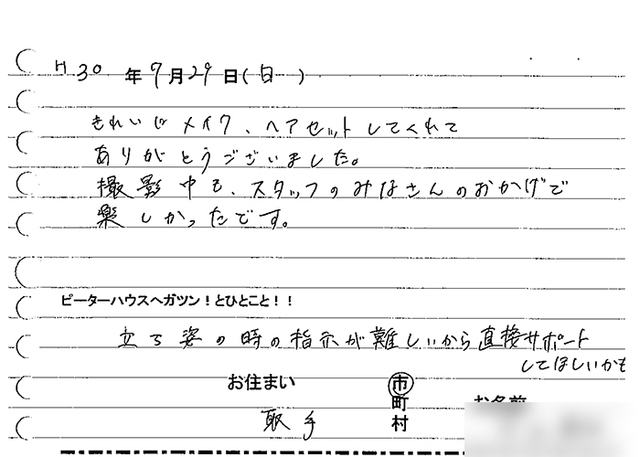 H30年9月29日(日)
きれいにメイク、ヘアセットしてくれて
ありがとうございました。
撮影中も、スタッフのみなさんのおかげで
楽しかったです。
ピーターハウスへガツン！とひとこと！！
立ち姿の時の指示が難しいから直接サポート
してほしいかも
お住まい
取手
市
町
村
お名前